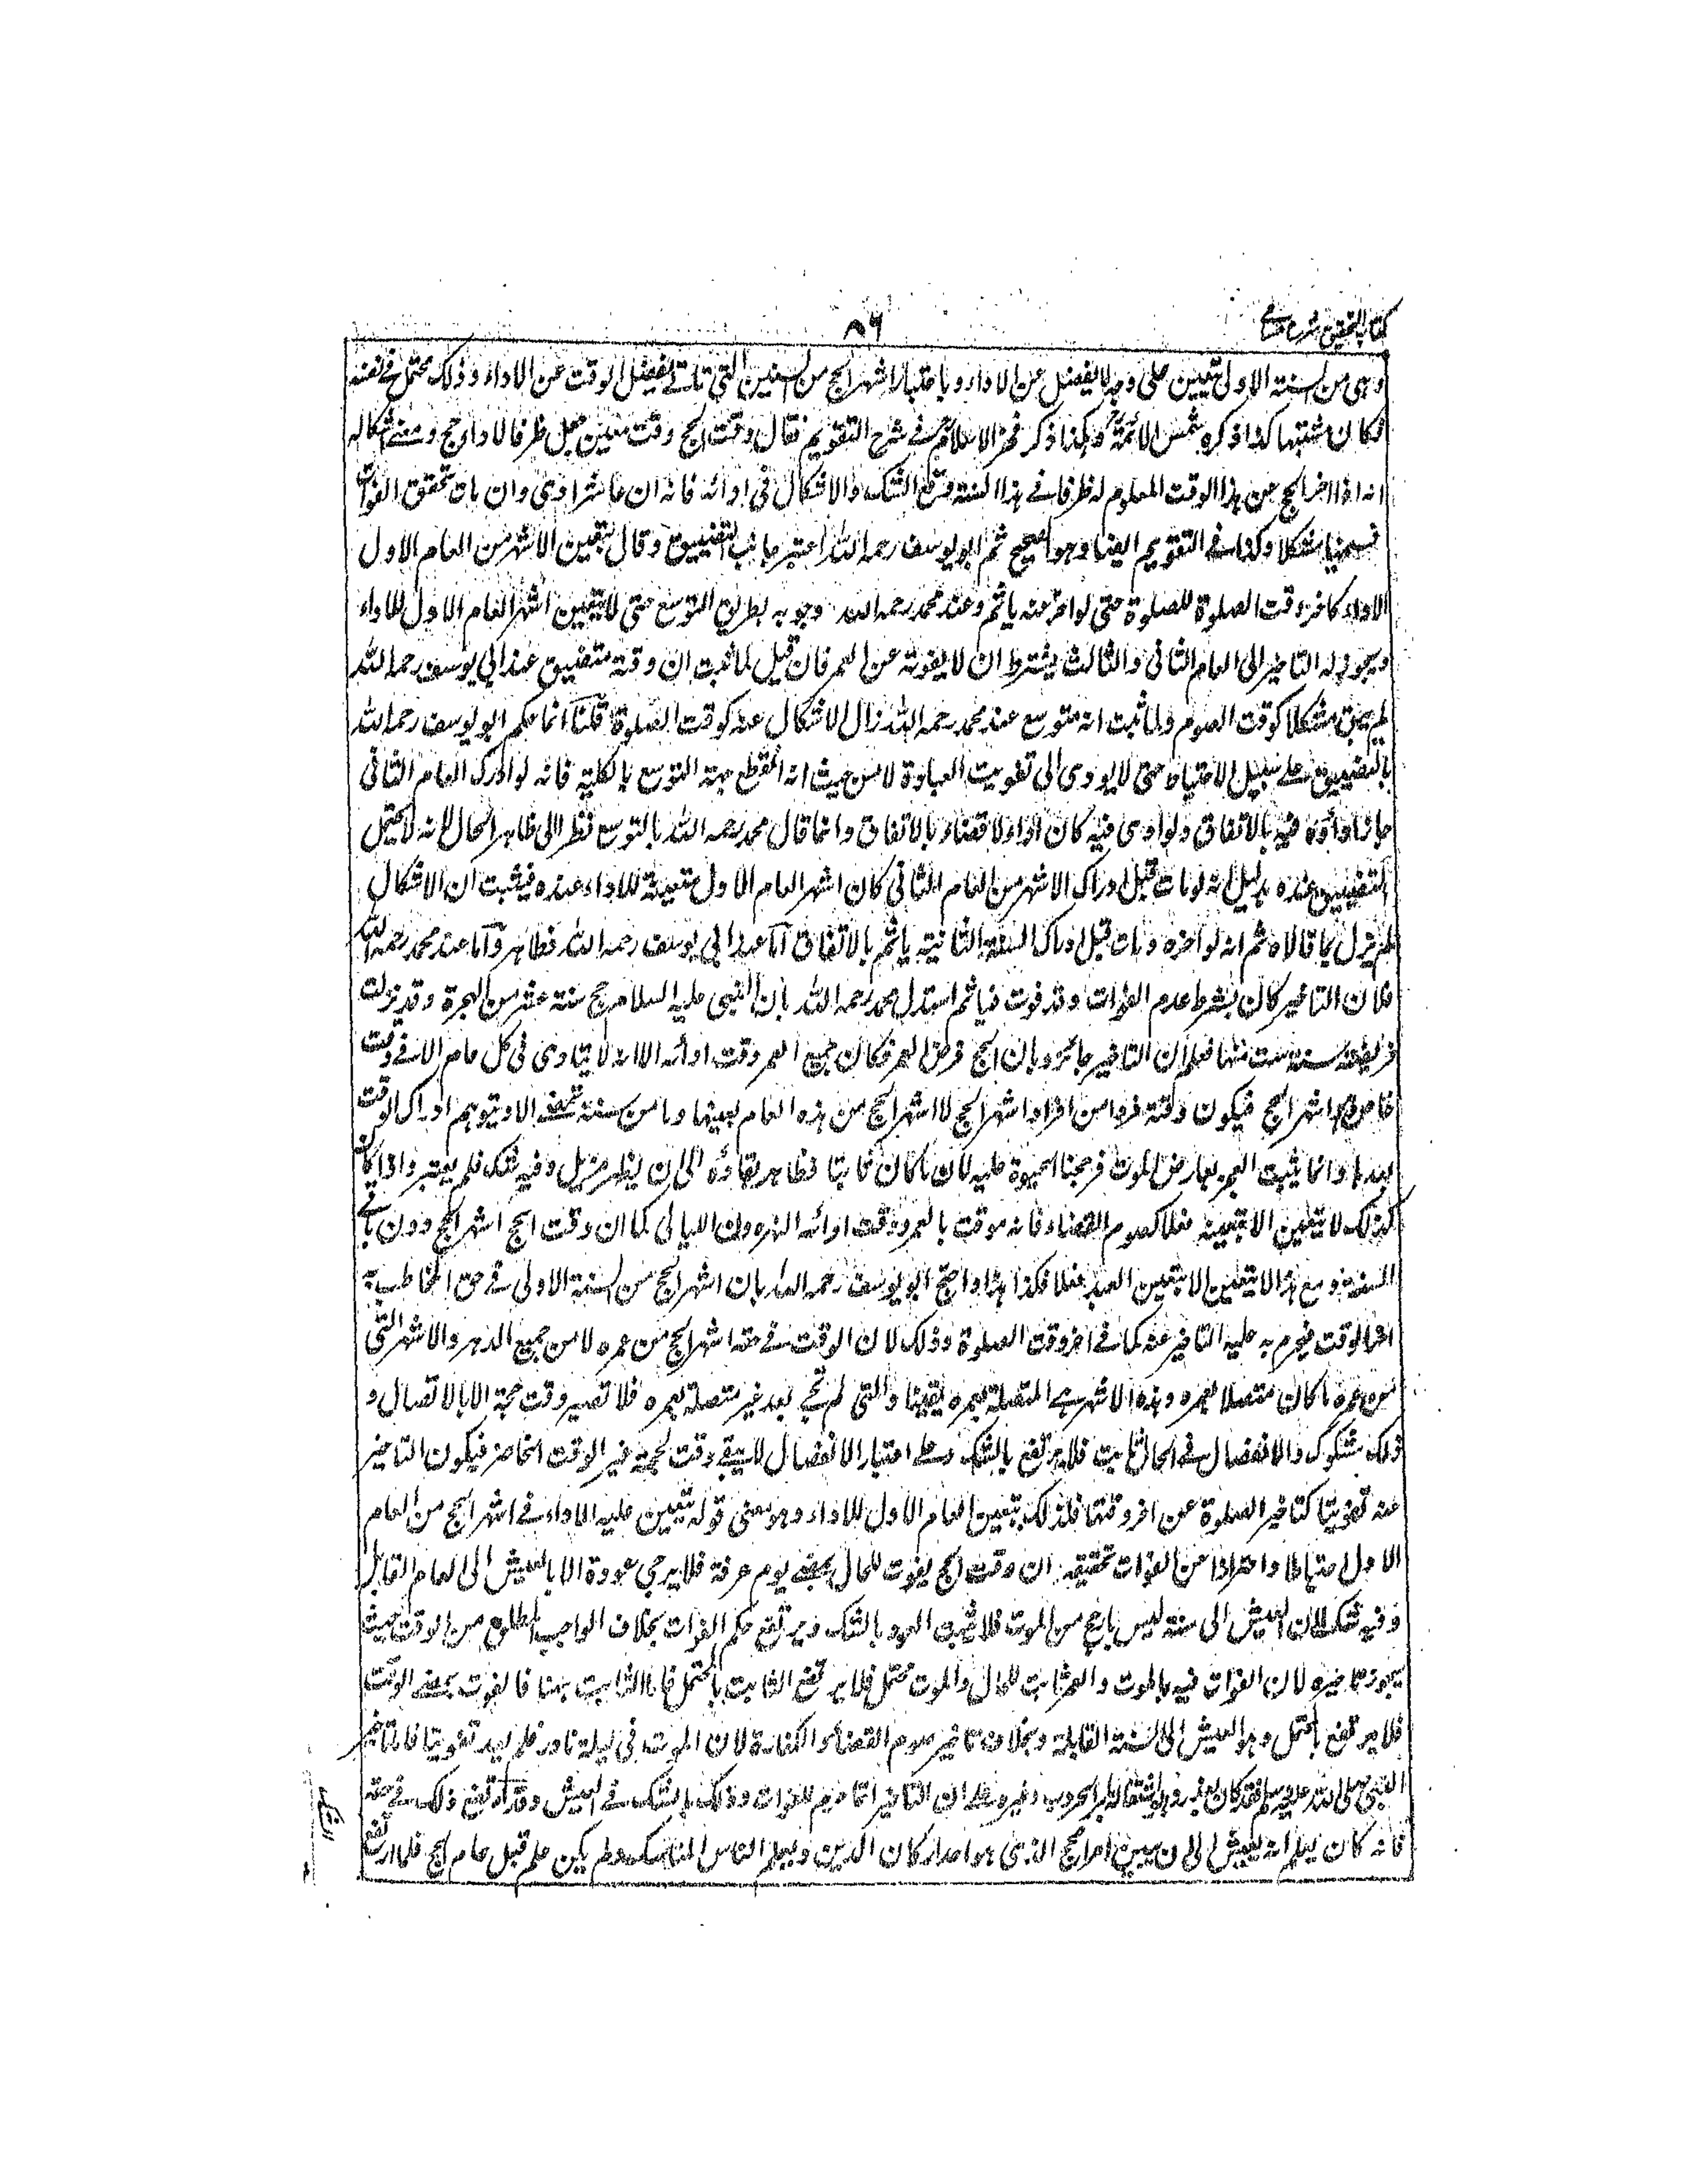 كتاب التحقيق شرح حسامى
٨٦
وهى من السنة الاولى يتعين على وجه لا يفضل عن الاداء وباعتبار اشهر الحج من السنين التى تاتى يفضل الوقت عن الاداء وذلك محتمل فى نفسه
فكان مشتبها كذا ذكره شمس الائمة وهكذا ذكر فخر الاسلام فى شرح التقويم فقال وقت الحج وقت معين جعل ظرفا لاداء حج ومعنى اشكاله
انه اذا اخر الحج عن هذا الوقت المعلوم له ظرفا فى هذا السنة وقع الشك والاشكال فى ادائه فانه ان عاش ادى وان مات تحقق الفوات
فسمينا مشكلا وكذا فى التقويم ايضا وهو الصحيح ثم ابو يوسف رحمه الله اعتبر جانب التضييق وقال بتعين الاشهر من العام الاول
الاداء كاخر وقت الصلوة للصلوة حتى لو اخر عنه ياثم وعند محمد رحمه الله وجوبه بطريق التوسع حتى لا يتعين اشهر العام الاول للاداء
ويجوز له التاخير الى العام الثانى والثالث بشرط ان لا يفوته عن العمر فان قيل لما ثبت ان وقته متضيق عند ابى يوسف رحمه الله
لم يبق مشكلا كوقت الصوم ولما ثبت انه متوسع عند محمد رحمه الله زال الاشكال عنه كوقت الصلوة قلنا انما حكم ابو يوسف رحمه الله
بالتضييق على سبيل الاحتياط حتى لا يودى الى تفويت العبادة لا من حيث انه انقطع جهة التوسع بالكلية فانه لو ادرك العام الثانى
جاز اداؤه فيه بالاتفاق ولو ادى فيه كان اداء لا قضاء بالاتفاق وانما قال محمد رحمه الله بالتوسع نظرا الى ظاهر الحال لا انه لا يحتمل
التضييق عنده بدليل انه لو مات قبل ادراك الاشهر من العام الثانى كان اشهر العام الاول متعينة للاداء عنده فيثبت ان الاشكال
لم يزل بما قالاه ثم انه لو اخره ومات قبل ادراك السنة الثانية ياثم بالاتفاق اما عند ابى يوسف رحمه الله فظاهر واما عند محمد رحمه الله
فلان التاخير كان بشرط عدم الفوات وقد فوت فياثم استدل محمد رحمه الله بان النبى عليه السلام حج سنة عشر من الهجرة وقد نزلت
فريضته سنة ست منها فعلم ان التاخير جائز وبان الحج فرض العمر فكان جميع العمر وقت ادائه الا انه لا يتادى فى كل عام الا فى وقت
خاص وهو اشهر الحج فيكون وقته فردا من افراد اشهر الحج لا اشهر الحج من هذه العام بعينها وما من سنة تمضى الا ويتوهم ادراك الوقت
بعدها وانما يثبت العجز بعارض الموت فرجحنا الحيوة عليه لان ما كان ثابتا فظاهر بقاؤه الى ان يظهر مزيل وفيه شك فلم يعتبر واذا كان
كذلك لا يتعين الا بتعيينه فعلا كصوم القضاء فانه موقت بالعمر ووقت ادائه النهر دون الليالى كما ان وقت الحج اشهر الحج دون باقى
السنة ومع هذا لا يتعين الا بتعين العبد فعلا فكذا هذا واحتج ابو يوسف رحمه الله بان اشهر الحج من السنة الاولى فى حق المخاطب به
اخر الوقت فيحرم به عليه التاخير عنه كما فى اخر وقت الصلوة وذلك لان الوقت فى حقه اشهر الحج من عمره لا من جميع الدهر والاشهر التى
من عمره ما كان متصلا بعمره وهذه الاشهر هى المتصلة بعمره يقينا والتى لم تجئ بعد غير متصلة بعمره فلا تصير وقت حجة الا بالاتصال و
ذلك مشكوك والانفصال فى الحال ثابت فلا يرتفع بالشك وعلى اعتبار الانفصال لا يبقى وقت لحجه غير الوقت الحاضر فيكون التاخير
عنه تفويتا كتاخير الصلوة عن اخر وقتها فلذلك يتعين العام الاول للاداء وهو معنى قوله يتعين عليه الاداء فى اشهر الحج من العام
الاول احتياطا واحترازا عن الفوات تحقيقه ان وقت الحج يفوت للحال بمضى يوم عرفة فلا يرجى عوده الا بالعيش الى العام القابل
وفيه شك لان العيش الى سنة ليس بارجح من الموت فلا يثبت العود بالشك ويرتفع حكم الفوات بخلاف الواجب المطلق من الوقت حيث
يجوز تاخيره لان الفوات فيه بالموت والعمر ثابت للحال والموت محتمل فلا يرتفع الثابت بالمحتمل فاما الثابت ههنا فالفوت بمضى الوقت
فلا يرتفع بالمحتمل وهو العيش الى السنة القابلة وبخلاف تاخير صوم القضاء والكفارة لان الموت فى ليلة نادر فلم يعد تفويتا فاما تاخير
النبى صلى الله عليه وسلم فقد كان بعذر وهو اشتغاله بامر الحروب وغيره على ان التاخير انما حرم للفوات وذلك بالشك فى العيش وقد ارتفع ذلك فى حقه
فانه كان يعلم انه يعيش الى ان يبين امر الحج الذى هو احد اركان الدين ويعلم الناس المناسك ولم يكن علم قبل عام الحج فلما ارتفع